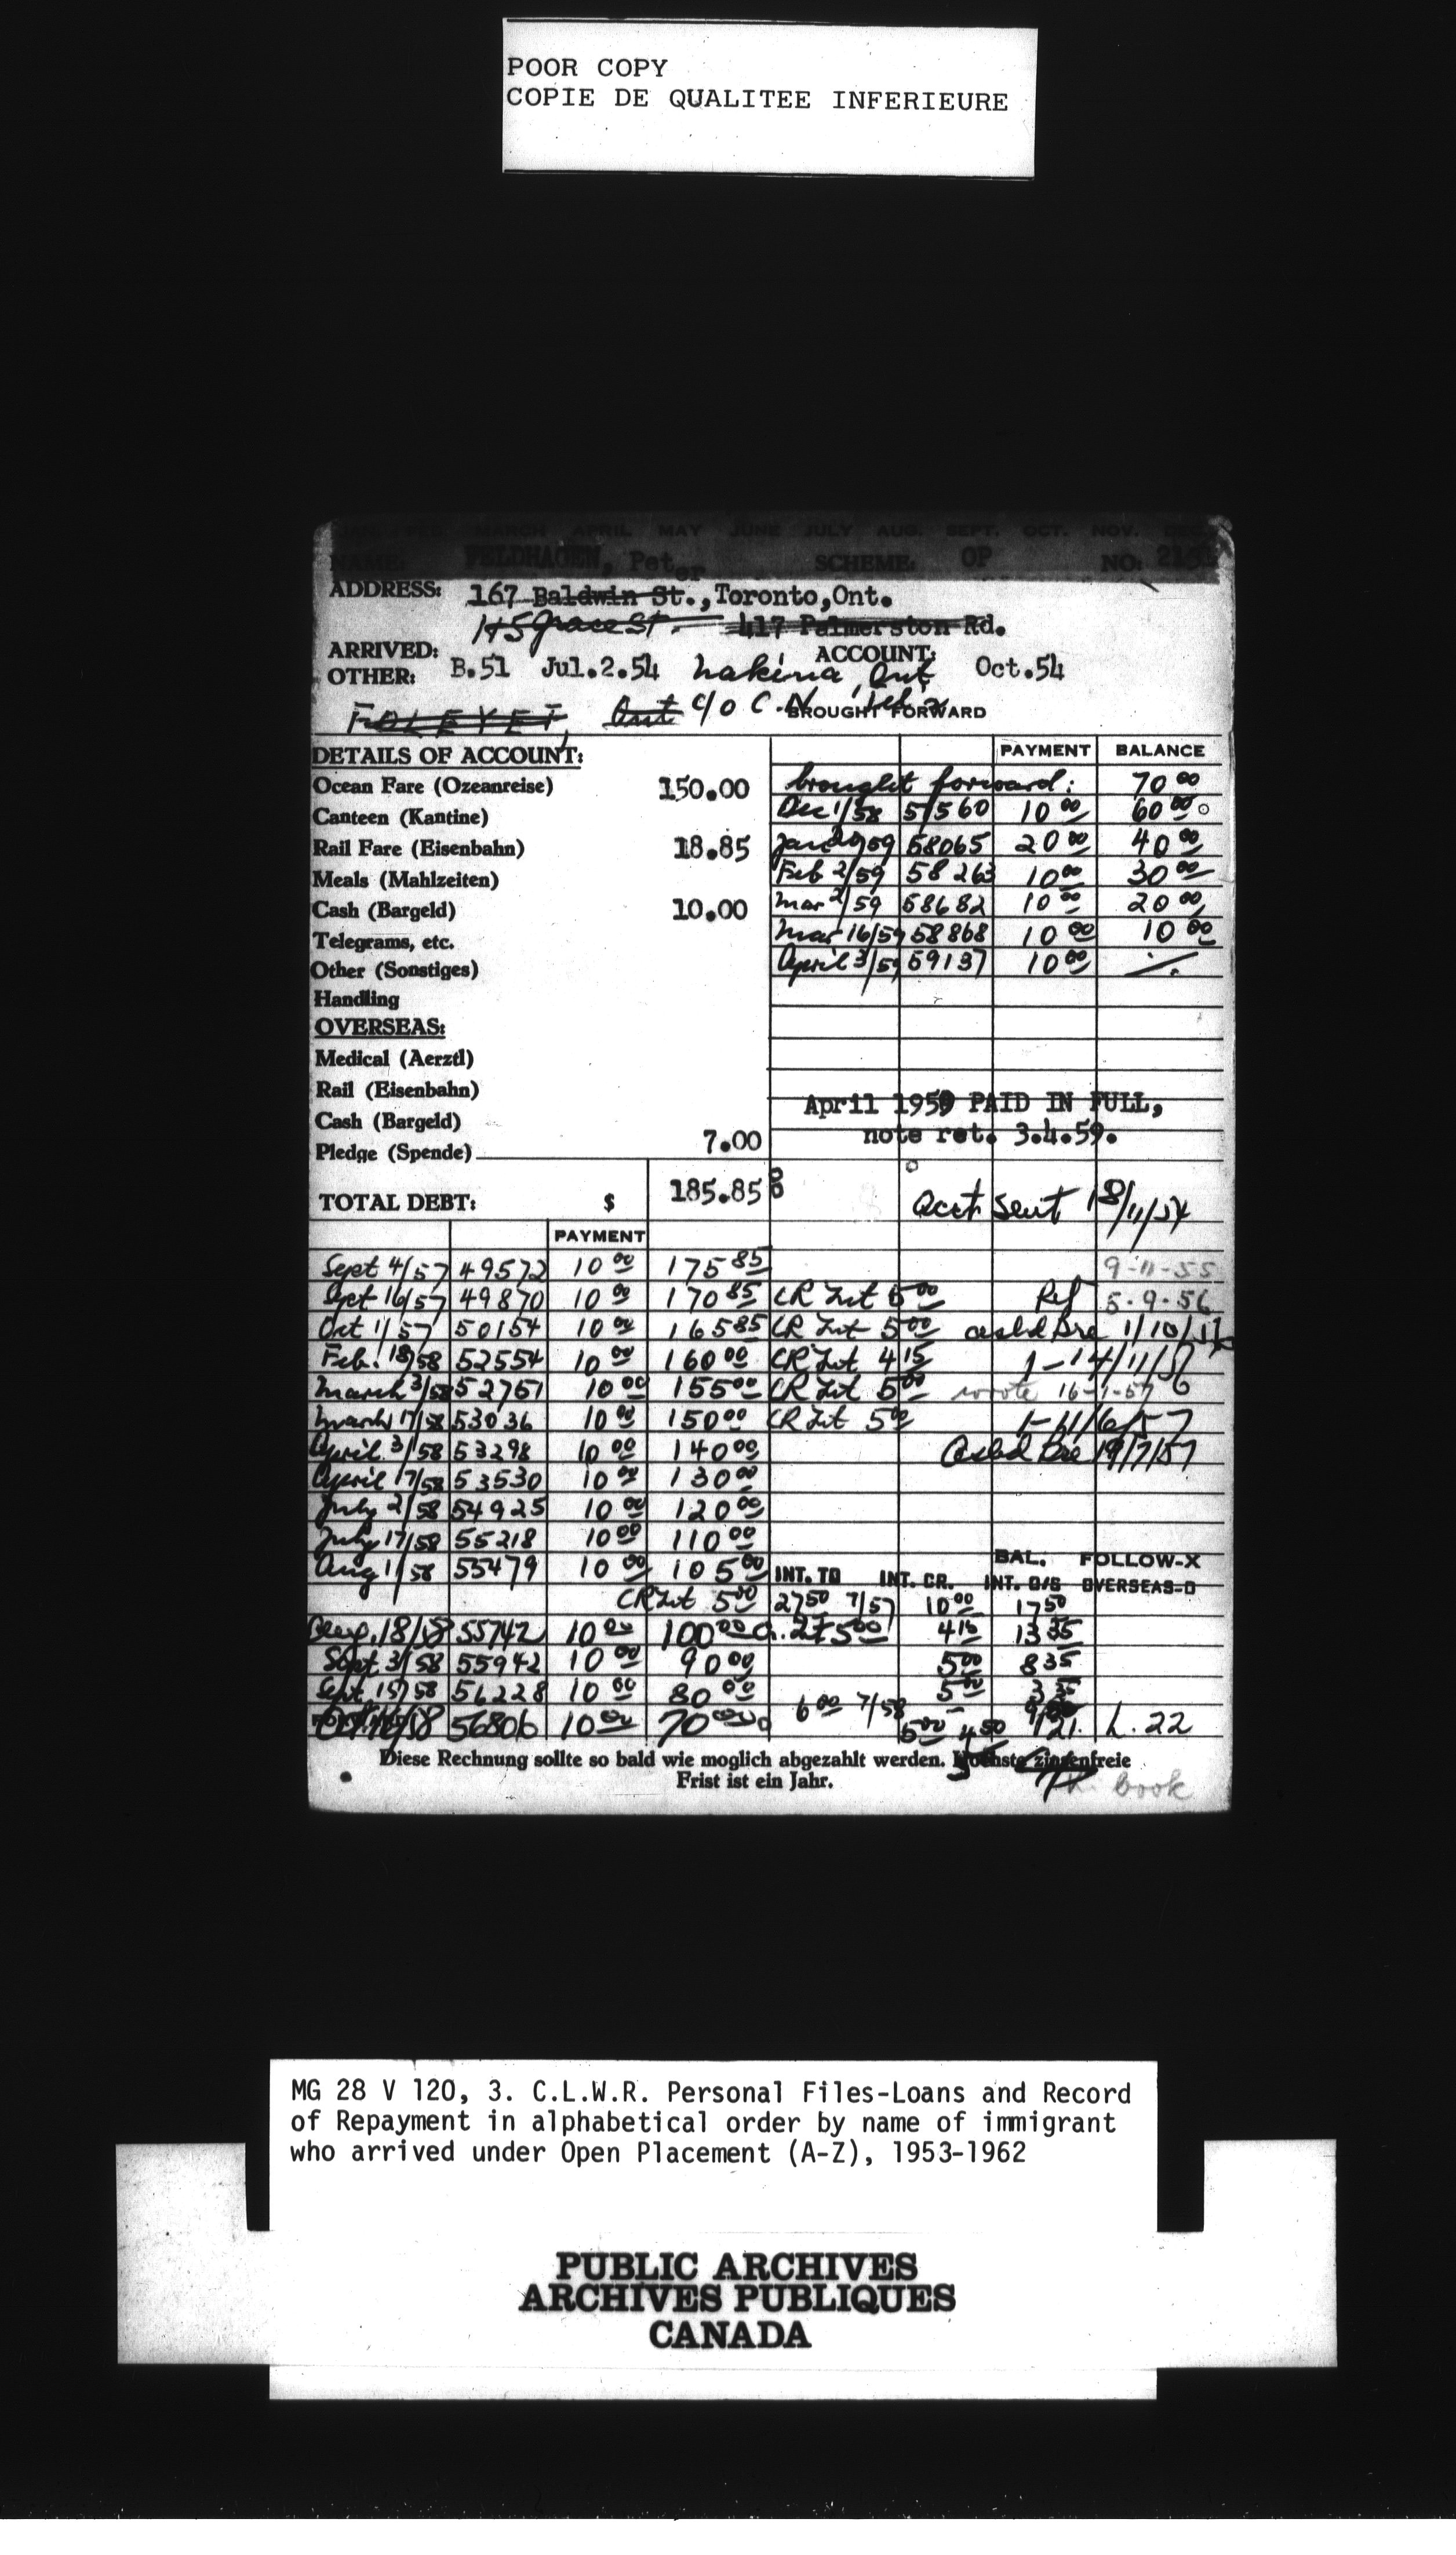 POOR COPY
COPIE DE QUALITEE INFERIEURE
MARCH APRIL MAY JUNE JULY AUG. SEPT. OCT. NOV. DEC.
NAME: FELDHAGEN, Peter SCHEME: OP NO:
ADDRESS: 167 Baldwin St., Toronto, Ont.
145 Grace St. 417 Palmerston Rd.
ARRIVED: ACCOUNT:
OTHER: B.51 Jul.2.54 Nakina, Ont Oct.54
FOLEYET, Ont c/o C.N. BROUGHT FORWARD
DETAILS OF ACCOUNT: PAYMENT BALANCE
Ocean Fare (Ozeanreise) 150.00 brought forward: 70 00
Canteen (Kantine) Dec 1/58 57560 10 00 60 00
Rail Fare (Eisenbahn) 18.85 Jan 20/59 58065 20 00 40 00
Meals (Mahlzeiten) Feb 2/59 58263 10 00 30 00
Cash (Bargeld) 10.00 Mar 2/59 58682 10 00 20 00
Telegrams, etc. Mar 16/59 58868 10 00 10 00
Other (Sonstiges) April 3/59 59137 10 00 /.
Handling
OVERSEAS:
Medical (Aerztl)
Rail (Eisenbahn)
April 1959 PAID IN FULL,
Cash (Bargeld)
note ret. 3.4.59.
Pledge (Spende) 7.00
TOTAL DEBT: $ 185.85 Acct sent 18/11/54
PAYMENT
Sept 4/57 49572 10 00 175 85 9-11-55
Sept 16/57 49870 10 00 170 85 CR Int 5 00 Ref 5-9-56
Oct 1/57 50154 10 00 165 85 CR Int 5 00
Feb. 18/58 52554 10 00 160 00 CR Int 4 15 1-14/11/56
March 3/58 52751 10 00 155 00 CR Int 5 00 wrote 16-1-57
March 17/58 53036 10 00 150 00 CR Int 5 00 1-11/6/57
April 3/58 53298 10 00 140 00 19/7/57
April 17/58 53530 10 00 130 00
July 2/58 54925 10 00 120 00
July 17/58 55218 10 00 110 00
BAL. FOLLOW-X
Aug 1/58 55479 10 00 105 00 INT. TO INT. CR. INT. O/S OVERSEAS-O
CR Int 5 00 27 50 7/57 10 00 17 50
Aug. 18/58 55742 10 00 100 00 4 15 13 35
Sept 3/58 55942 10 00 90 00 5 00 8 35
Sept 15/58 56228 10 00 80 00 5 00 3 35
56806 10 00 70 00 6 00 7/58 5 00 4 50 L. 22
Diese Rechnung sollte so bald wie moglich abgezahlt werden. Hochste zinsenfreie
Frist ist ein Jahr.
book
MG 28 V 120, 3. C.L.W.R. Personal Files-Loans and Record
of Repayment in alphabetical order by name of immigrant
who arrived under Open Placement (A-Z), 1953-1962
PUBLIC ARCHIVES
ARCHIVES PUBLIQUES
CANADA